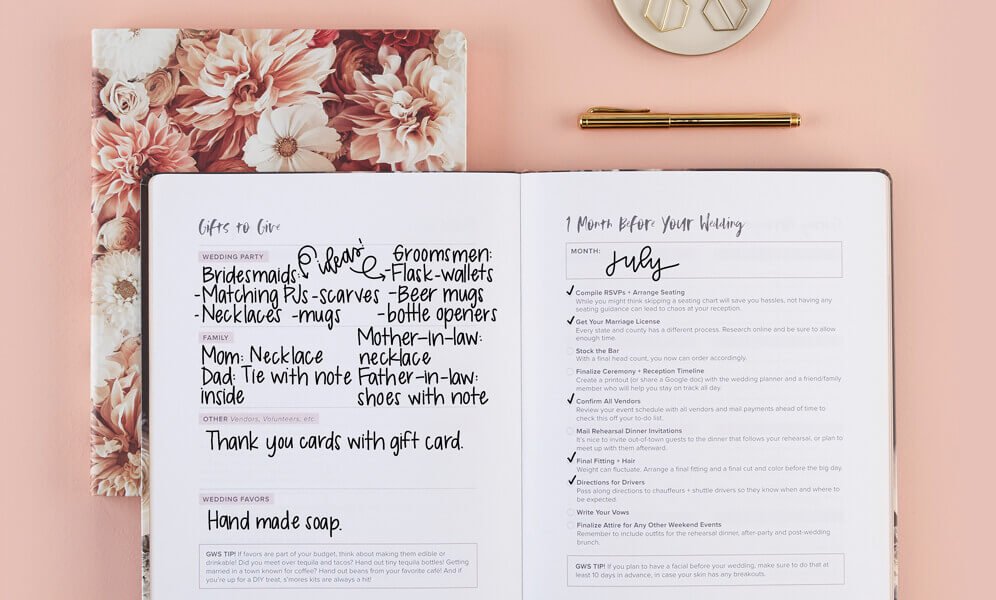 Gifts to Give
WEDDING PARTY
ideas!
Bridesmaids:
-Matching PJs -scarves
-Necklaces -mugs
Groomsmen:
-Flask-wallets
-Beer mugs
-bottle openers
FAMILY
Mom: Necklace
Dad: Tie with note
inside
Mother-in-law:
necklace
Father-in-law:
shoes with note
OTHER Vendors, Volunteers, etc.
Thank you cards with gift card.
WEDDING FAVORS
Hand made soap.
GWS TIP! If favors are part of your budget, think about making them edible or
drinkable! Did you meet over tequila and tacos? Hand out tiny tequila bottles! Getting
married in a town known for coffee? Hand out beans from your favorite café! And if
you're up for a DIY treat, s'mores kits are always a hit!
1 Month Before Your Wedding
MONTH:
July
Compile RSVPs + Arrange Seating
While you might think skipping a seating chart will save you hassles, not having any
seating guidance can lead to chaos at your reception.
Get Your Marriage License
Every state and county has a different process. Research online and be sure to allow
enough time.
Stock the Bar
With a final head count, you now can order accordingly.
Finalize Ceremony + Reception Timeline
Create a printout (or share a Google doc) with the wedding planner and a friend/family
member who will help you stay on track all day.
Confirm All Vendors
Review your event schedule with all vendors and mail payments ahead of time to
check this off your to-do list.
Mail Rehearsal Dinner Invitations
It's nice to invite out-of-town guests to the dinner that follows your rehearsal, or plan to
meet up with them afterward.
Final Fitting + Hair
Weight can fluctuate. Arrange a final fitting and a final cut and color before the big day.
Directions for Drivers
Pass along directions to chauffeurs + shuttle drivers so they know when and where to
be expected.
Write Your Vows
Finalize Attire for Any Other Weekend Events
Remember to include outfits for the rehearsal dinner, after-party and post-wedding
brunch.
GWS TIP! If you plan to have a facial before your wedding, make sure to do that at
least 10 days in advance, in case your skin has any breakouts.